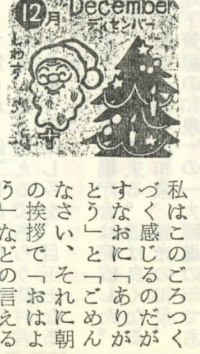 12月
December
ディセンバー
しわす
私はこのごろつく
づく感じるのだが
すなおに「ありが
とう」と「ごめん
なさい、それに朝
の挨拶で「おはよ
う」などの言える